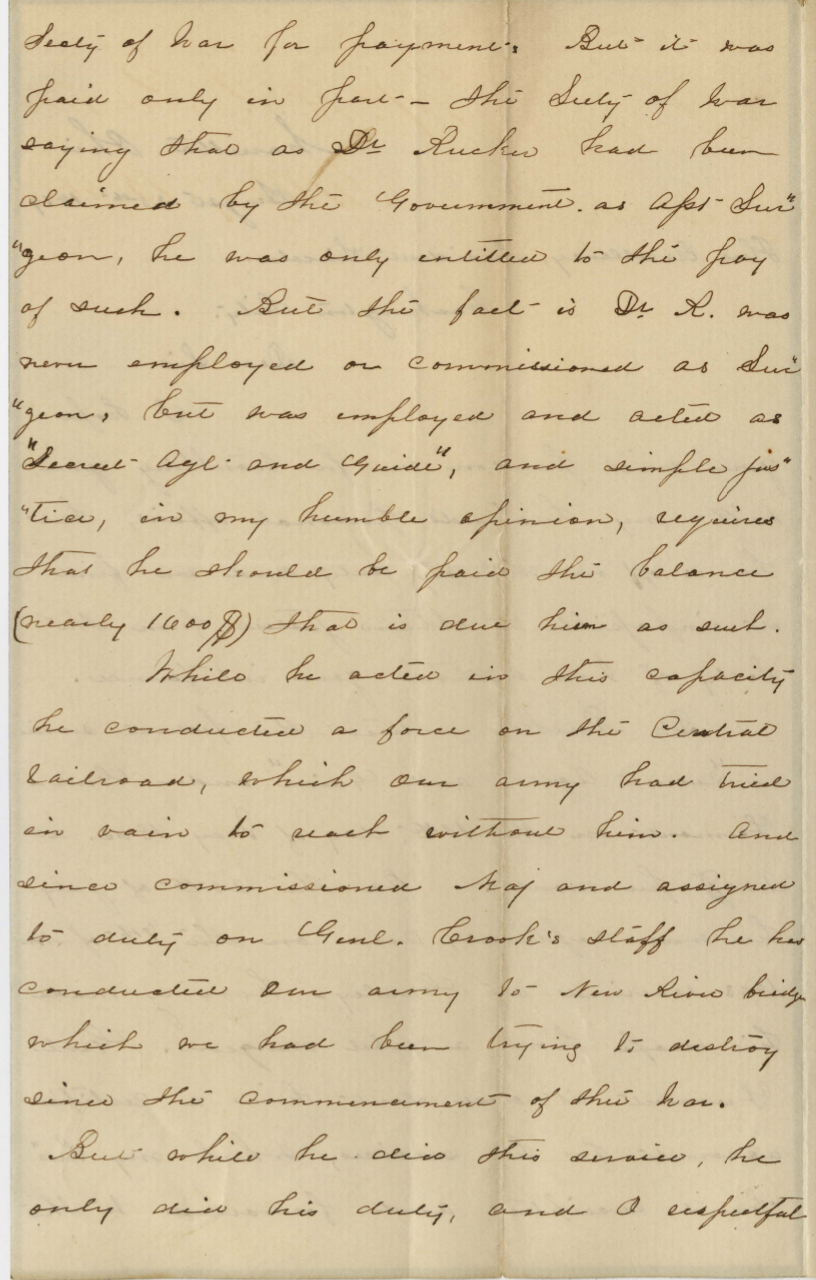 Secty of War for payment. But it was
paid only in part — the Secty of War
saying that as Dr Rucker had been
claimed by the Government. as Asst Sur"
"geon, he was only entitled to the pay
of such. But the fact is Dr R. was
never employed or commissioned as Sur"
"geon, but was employed and acted as
"Secret Agt and Guide", and simple jus"
"tice, in my humble opinion, requires
that he should be paid the balance
(nearly 1600$) that is due him as such.
While he acted in this capacity
he conducted a force on the Central
Railroad, which our army had tried
in vain to reach without him. And
since commissioned Maj and assigned
to duty on Genl. Crook's staff he has
conducted our army to New River bridge
which we had been trying to destroy
since the commencement of the War.
But while he did this service, he
only did his duty, and I respectful